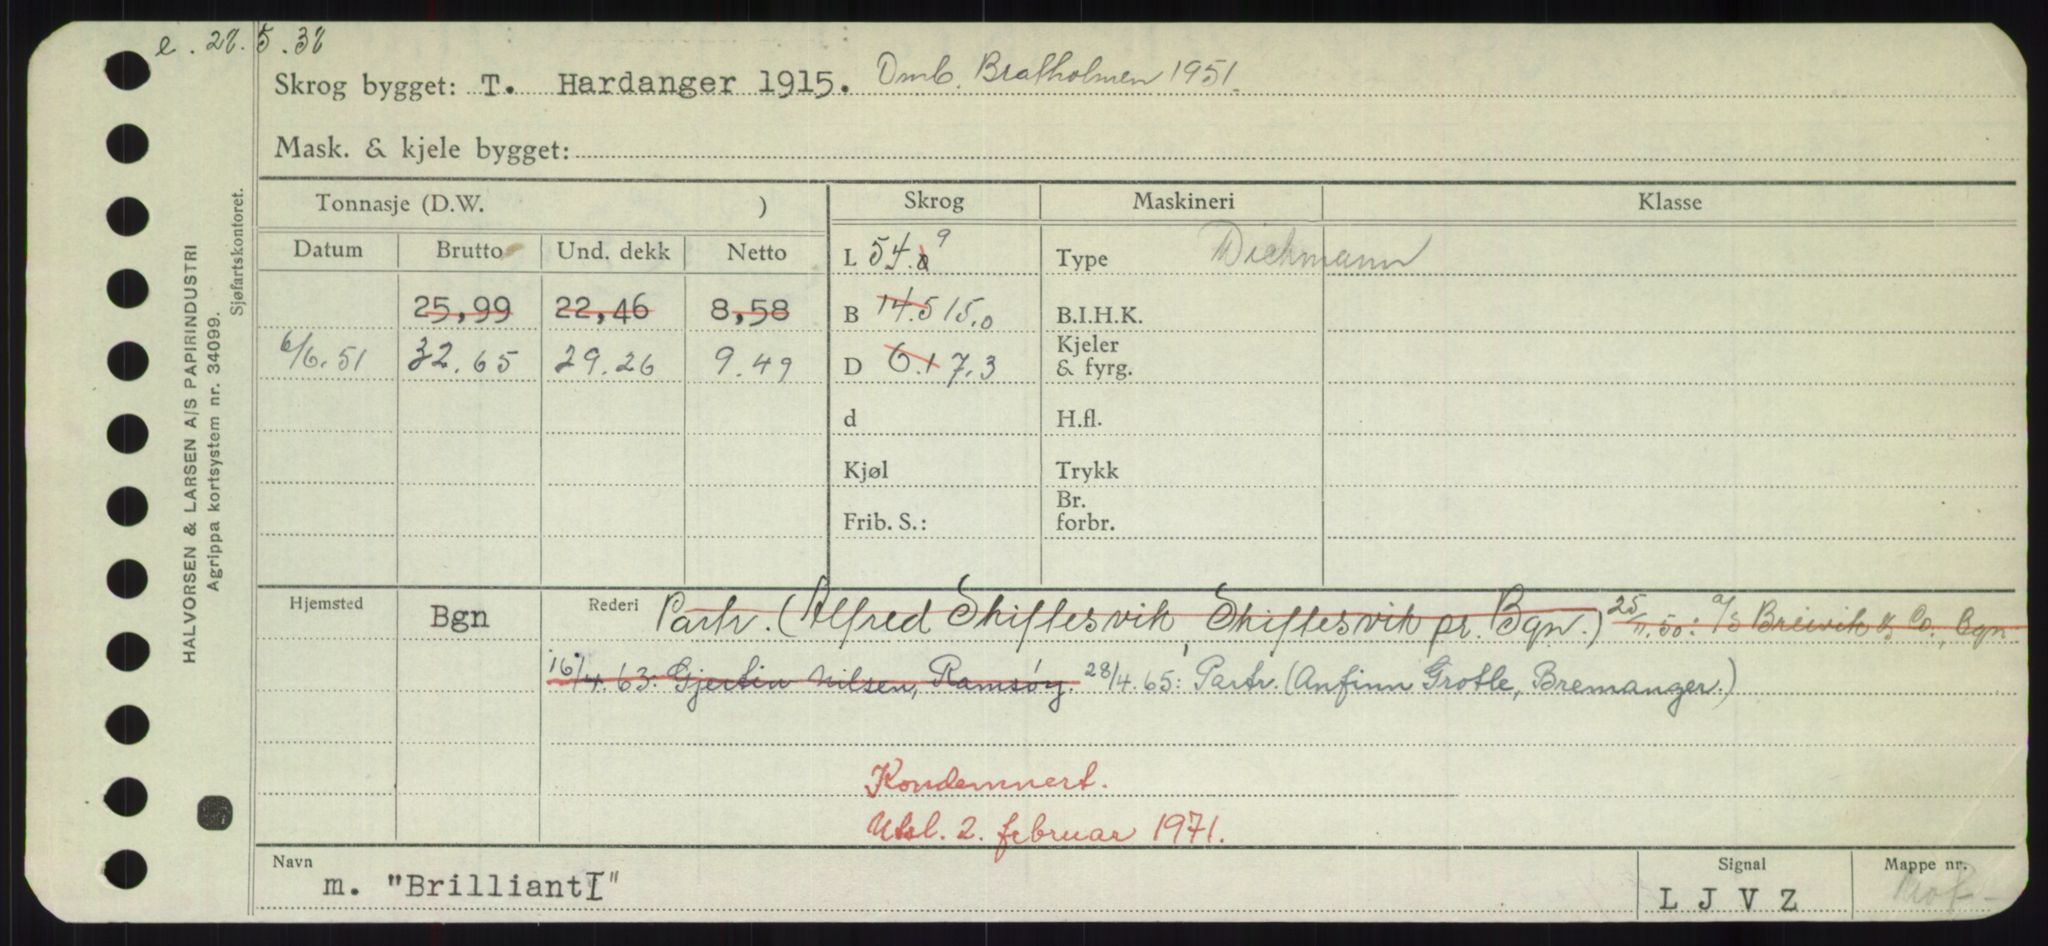 e. 28.5.38
Skrog bygget: T. Hardanger 1915. Omb. Bratholmen 1951.
Mask. & kjele bygget:
Tonnasje (D.W. )
Skrog
Maskineri
Klasse
Datum
Brutto
Und. dekk
Netto
L 54.0 9
Type Dickmann
25,99
22,46
8,58
B 14.5 15.0
B.I.H.K.
6/6.51
32.65
29.26
9.49
D 6.1 7.3
Kjeler
& fyrg.
d
H.fl.
Kjøl
Trykk
Frib. S.:
Br.
forbr.
Hjemsted
Bgn
Rederi
Partr. (Alfred Skiftesvik, Skiftesvik pr. Bgn.) 25/11.50: A/S Breivik & Co., Bgn.
16/4.63: Gjertin Nilsen, Ramsøy. 28/4.65: Partr. (Anfinn Grotle, Bremanger.)
Kondemnert.
Utsl. 2. februar 1971.
Navn
m. "Brilliant I"
Signal
L J V Z
Mappe nr.
HALVORSEN & LARSEN A/S PAPIRINDUSTRI
Agrippa kortsystem nr. 34099.
Sjøfartskontoret.